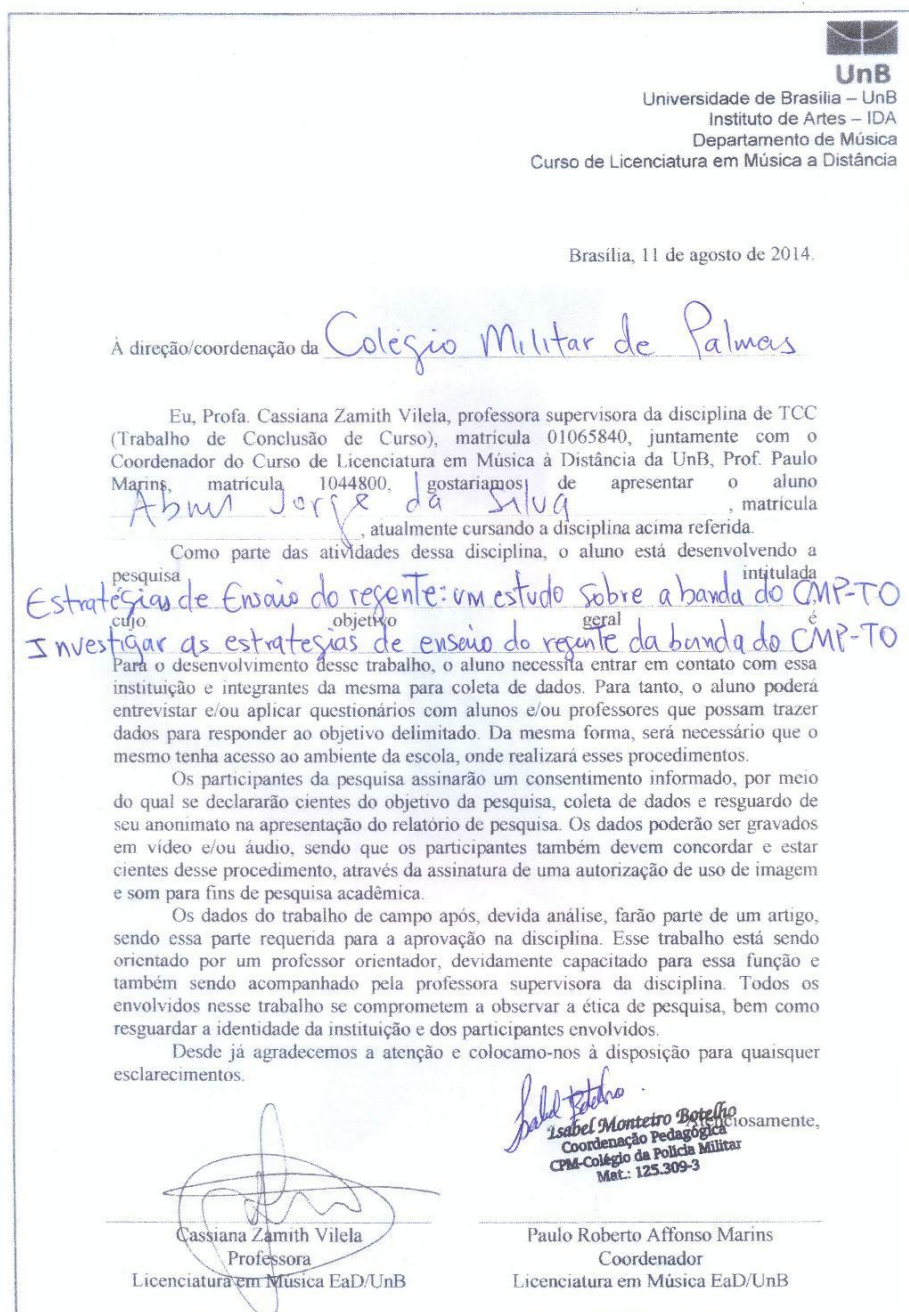 UnB
Universidade de Brasília – UnB
Instituto de Artes – IDA
Departamento de Música
Curso de Licenciatura em Música a Distância
Brasília, 11 de agosto de 2014.
À direção/coordenação da Colégio Militar de Palmas
Eu, Profa. Cassiana Zamith Vilela, professora supervisora da disciplina de TCC
(Trabalho de Conclusão de Curso), matrícula 01065840, juntamente com o
Coordenador do Curso de Licenciatura em Música à Distância da UnB, Prof. Paulo
Marins, matrícula 1044800, gostaríamos de apresentar o aluno
Jorge da Silva, matrícula
, atualmente cursando a disciplina acima referida.
Como parte das atividades dessa disciplina, o aluno está desenvolvendo a
pesquisa intitulada
Estratégias de Ensaio do regente: um estudo sobre a banda do CMP-TO
cujo objetivo geral é
Investigar as estratégias de ensaio do regente da banda do CMP-TO
Para o desenvolvimento desse trabalho, o aluno necessita entrar em contato com essa
instituição e integrantes da mesma para coleta de dados. Para tanto, o aluno poderá
entrevistar e/ou aplicar questionários com alunos e/ou professores que possam trazer
dados para responder ao objetivo delimitado. Da mesma forma, será necessário que o
mesmo tenha acesso ao ambiente da escola, onde realizará esses procedimentos.
Os participantes da pesquisa assinarão um consentimento informado, por meio
do qual se declararão cientes do objetivo da pesquisa, coleta de dados e resguardo de
seu anonimato na apresentação do relatório de pesquisa. Os dados poderão ser gravados
em vídeo e/ou áudio, sendo que os participantes também devem concordar e estar
cientes desse procedimento, através da assinatura de uma autorização de uso de imagem
e som para fins de pesquisa acadêmica.
Os dados do trabalho de campo após, devida análise, farão parte de um artigo,
sendo essa parte requerida para a aprovação na disciplina. Esse trabalho está sendo
orientado por um professor orientador, devidamente capacitado para essa função e
também sendo acompanhado pela professora supervisora da disciplina. Todos os
envolvidos nesse trabalho se comprometem a observar a ética de pesquisa, bem como
resguardar a identidade da instituição e dos participantes envolvidos.
Desde já agradecemos a atenção e colocamo-nos à disposição para quaisquer
esclarecimentos.
Isabel Botelho
Atenciosamente,
Isabel Monteiro Botelho
Coordenação Pedagógica
CPM-Colégio da Polícia Militar
Mat.: 125.309-3
Cassiana Zamith Vilela
Professora
Licenciatura em Música EaD/UnB
Paulo Roberto Affonso Marins
Coordenador
Licenciatura em Música EaD/UnB